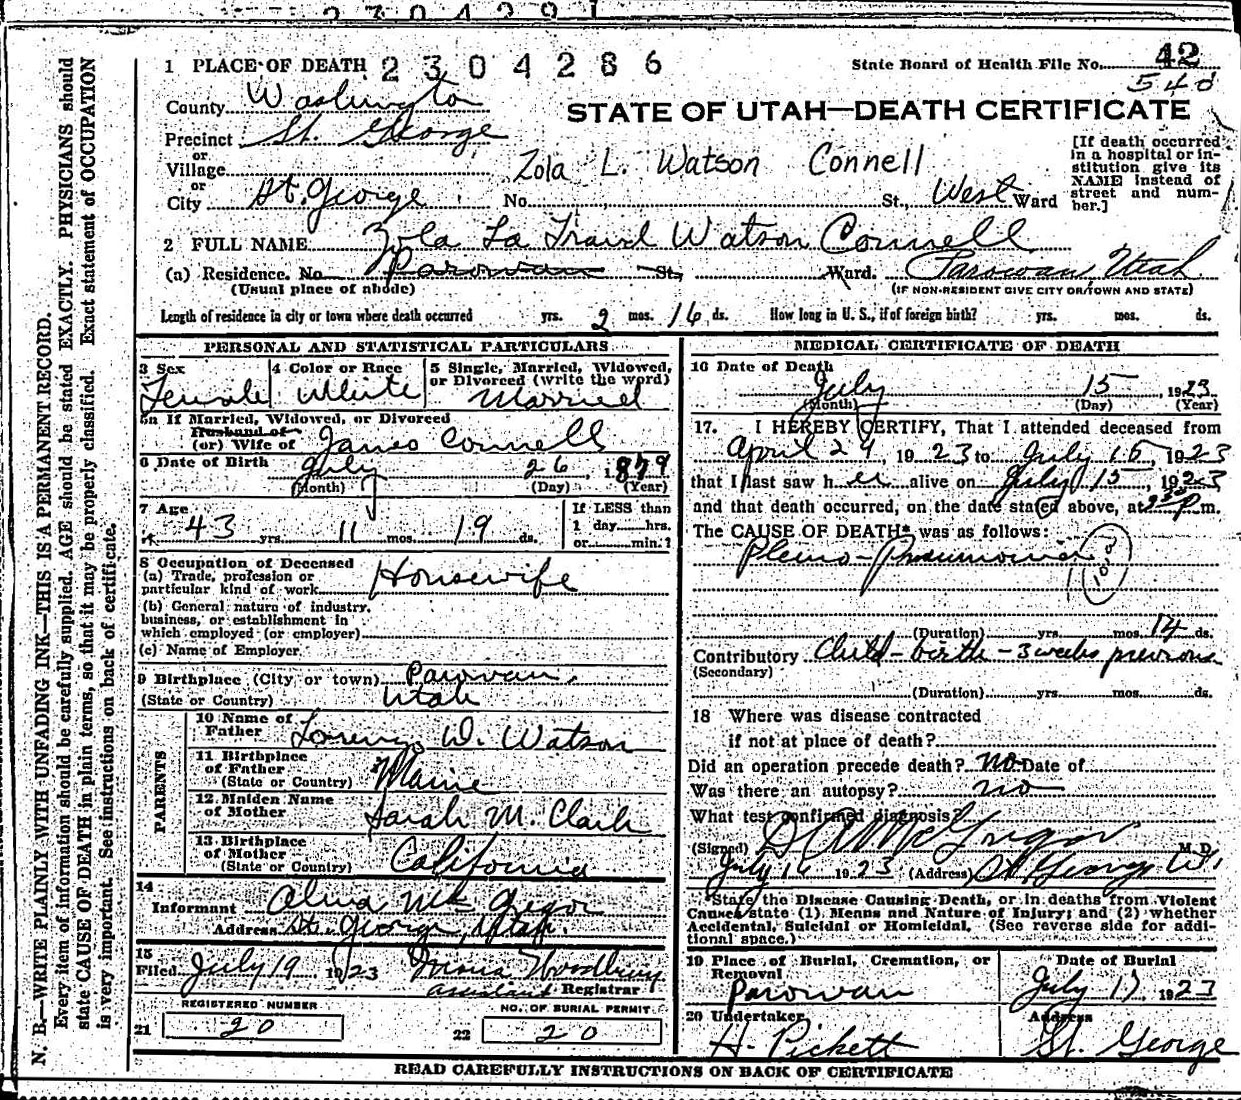 2304291
1 PLACE OF DEATH 2304286 State Board of Health File No. 42
540
County Washington
STATE OF UTAH—DEATH CERTIFICATE
Precinct St. George
or
Village
or
City St. George
Zola L. Watson Connell
No. St., West Ward
[If death occurred in a hospital or institution give its NAME instead of street and number.]
2 FULL NAME Zola La Watson Connell
(a) Residence. No. Parowan St., Ward. Parowan Utah
(Usual place of abode) (IF NON-RESIDENT GIVE CITY OR TOWN AND STATE)
Length of residence in city or town where death occurred yrs. 2 mos. 16 ds. How long in U. S., if of foreign birth? yrs. mos. ds.
PERSONAL AND STATISTICAL PARTICULARS
3 Sex Female
4 Color or Race White
5 Single, Married, Widowed, or Divorced (write the word) Married
5a If Married, Widowed, or Divorced
Husband of
(or) Wife of James Connell
6 Date of Birth July 26, 1879
(Month) (Day) (Year)
7 Age 43 yrs. 11 mos. 19 ds.
If LESS than
1 day hrs.
or min.?
8 Occupation of Deceased
(a) Trade, profession or
particular kind of work Housewife
(b) General nature of industry,
business, or establishment in
which employed (or employer)
(c) Name of Employer
9 Birthplace (City or town) Parowan,
(State or Country) Utah
PARENTS
10 Name of Father Lorenzo D. Watson
11 Birthplace of Father (State or Country) Maine
12 Maiden Name of Mother Sarah M. Clark
13 Birthplace of Mother (State or Country) California
14
Informant Alma McGregor
Address St. George, Utah.
15
Filed July 19 1923 Woodbury
assistant Registrar
REGISTERED NUMBER NO. OF BURIAL PERMIT
21 20 22 20
MEDICAL CERTIFICATE OF DEATH
16 Date of Death
July 15 1923
(Month) (Day) (Year)
17. I HEREBY CERTIFY, That I attended deceased from
April 29, 1923 to July 15, 1923
that I last saw her alive on July 15, 1923
and that death occurred, on the date stated above, at P.m.
The CAUSE OF DEATH* was as follows:
Pleuro-Pneumonia
(Duration) yrs. mos. 14 ds.
Contributory Child-birth - 3 weeks previous
(Secondary)
(Duration) yrs. mos. ds.
18 Where was disease contracted
if not at place of death?
Did an operation precede death? no Date of
Was there an autopsy? no
What test confirmed diagnosis?
(Signed) D C McGregor M.D.
July 16 1923 (Address) St. George U.
*State the Disease Causing Death, or in deaths from Violent
Causes state (1) Means and Nature of Injury; and (2) whether
Accidental, Suicidal or Homicidal. (See reverse side for addi-
tional space.)
19 Place of Burial, Cremation, or Removal
Parowan
Date of Burial
July 17 1923
20 Undertaker
H. Pickett
Address
St. George
READ CAREFULLY INSTRUCTIONS ON BACK OF CERTIFICATE
N. B.—WRITE PLAINLY WITH UNFADING INK—THIS IS A PERMANENT RECORD.
Every item of information should be carefully supplied. AGE should be stated EXACTLY. PHYSICIANS should
state CAUSE OF DEATH in plain terms, so that it may be properly classified. Exact statement of OCCUPATION
is very important. See instructions on back of certificate.